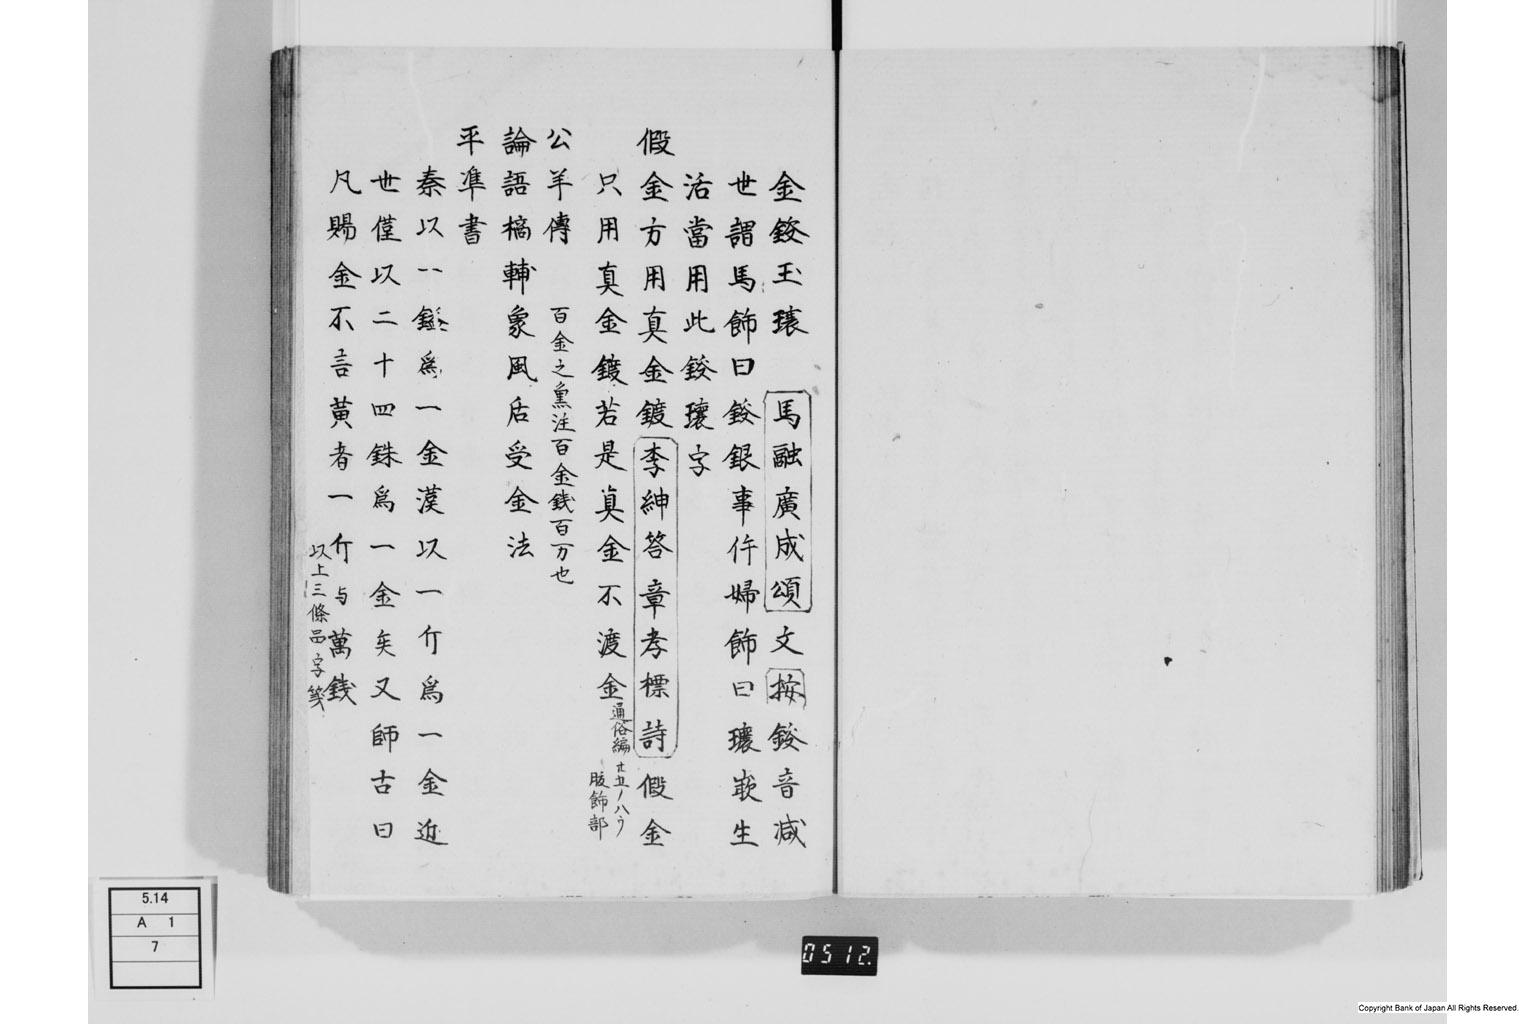 金鋄玉瓖 馬融廣成頌文按鋄音减
世謂馬飾曰鋄銀事件婦飾曰瓖嵌生
活當用此鋄瓖字
假金方用真金鍍李紳答章孝標詩假金
只用真金鍍若是真金不渡金通俗編
廿五ノ八ウ
服飾部
公羊傳 百金之魚注百金錢百万也
論語摘輔象風后受金法
平凖書
秦以一鎰爲一金漢以一斤爲一金近
世僅以二十四銖爲一金矣又師古曰
凡賜金不言黃者一斤与萬錢
以上三條品字箋
5.14
A 1
7
0512.
Copyright Bank of Japan All Rights Reserved.